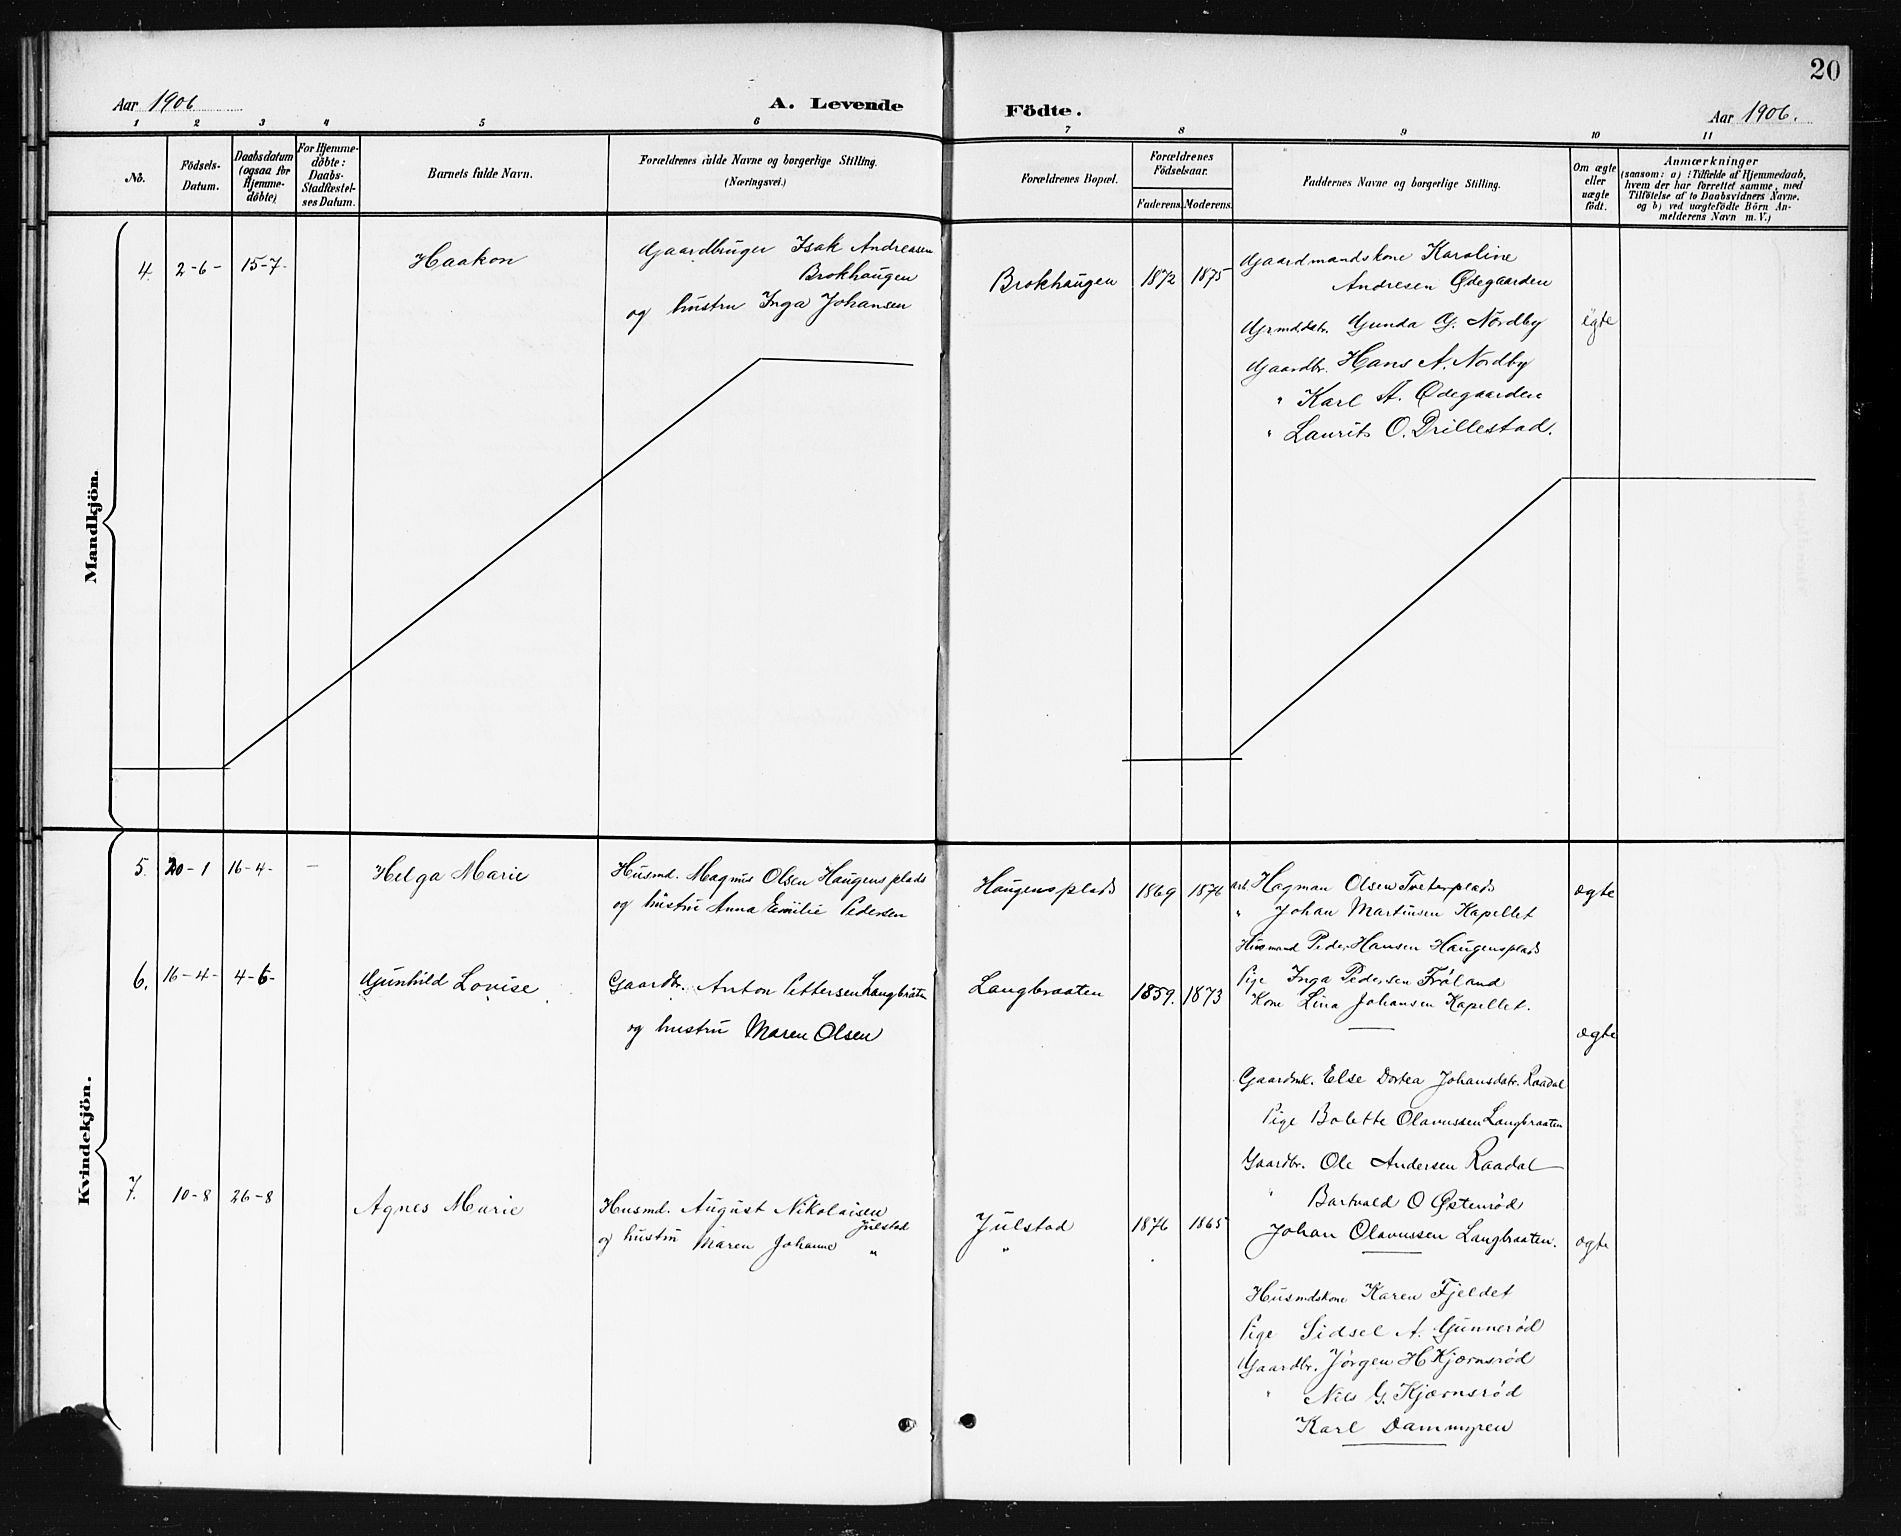 20
Aar 1906
A. Levende
Födte.
Aar 1906.
1 2 3 4 5 6 7 8 9 10 11
No.
Födsels-
Datum.
Daabsdatum
(ogsaa for
Hjemme-
döbte)
For Hjemme-
döbte:
Daabs-
Stadfæstel-
ses Datum.
Barnets fulde Navn.
Forældrenes fulde Navne og borgerlige Stilling.
(Næringsvei.)
Forældrenes Bopæl.
Forældrenes
Födselsaar.
Faderens.
Moderens.
Faddernes Navne og borgerlige Stilling.
Om ægte
eller
uægte
födt.
Anmærkninger
(saasom: a) i Tilfælde af Hjemmedaab,
hvem der har forrettet samme, med
Tilföielse af to Daabsvidners Navne.
og b) ved uægtefödte Börn An-
melderens Navn m. V.)
Mandkjön.
4. 2-6- 15-7- Haakon
Gaardbruger Isak Andreasen
Brokhaugen
og hustru Inga Johansen
Brokhaugen 1872 1875
Gaardmandskone Karoline
Andresen Ødegaarden
Grmddatr. Gunda G. Nordby
Gaardbr. Hans A. Nordby
" Karl A. Ødegaarden
" Laurits O. Drillestad.
egte
Kvindekjön.
5. 20-1 16-4- — Helga Marie
Husmd. Magnus Olsen Haugensplads
og hustru Anna Emilie Pedersen
Haugensplads 1869 1876
arb. Hagman Olsen Tveterplads
" Johan Martinsen Kapellet
Husmand Peder Hansen Haugensplads
Pige Inga Pedersen Frøland
Kone Lina Johansen Kapellet.
ægte
6. 16-4- 4-6- Gunhild Lovise
Gaardbr. Anton Pettersen Langbraaten
og hustru Maren Olsen
Langbraaten 1859. 1873
ægte
Gaardmk. Else Dortea Johansdatr. Raadal
Pige Bolette Olavussen Langbraaten
Gaardbr. Ole Andersen Raadal
" Bartvald O Østenrød
Johan Olavussen Langbraaten.
7. 10-8 26-8 Agnes Marie
Husmd. August Nikolaisen
Julstad
og hustru Maren Johanne "
Julstad 1876 1865
"
ægte
Husmdskone Karen Fjeldet
Pige Sidsel A. Gunnerød
Gaardbr. Jørgen H Kjærnsrød
" Nils G. Kjærnsrød
Karl Dammyren